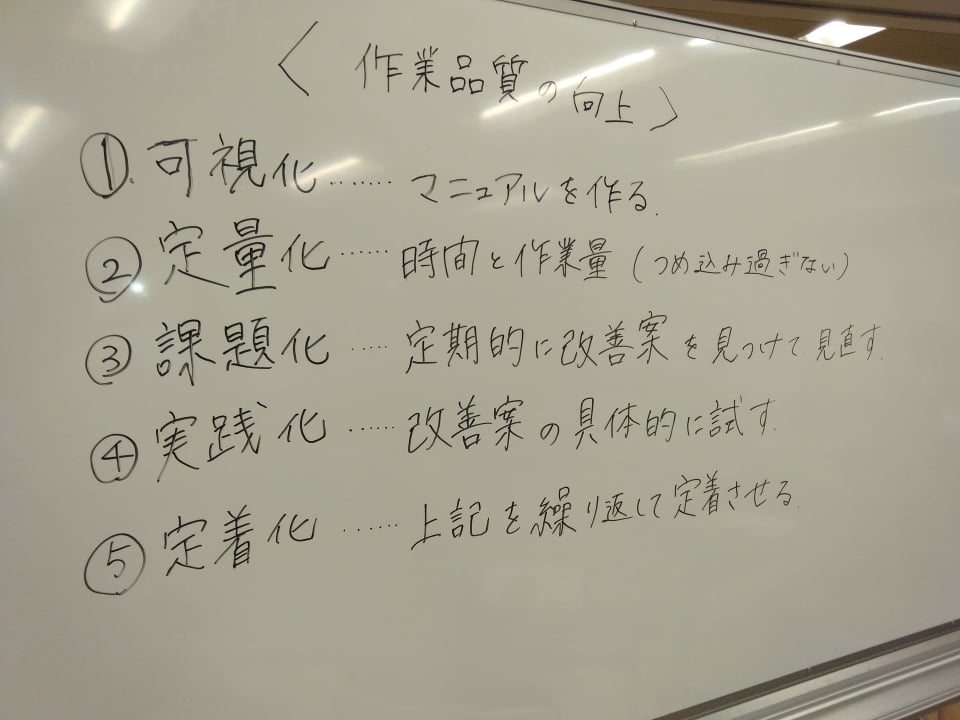 〈作業品質の向上〉
① 可視化…… マニュアルを作る.
② 定量化…… 時間と作業量(つめ込み過ぎない)
③ 課題化…… 定期的に改善案を見つけて見直す.
④ 実践化…… 改善案の具体的に試す.
⑤ 定着化…… 上記を繰り返して定着させる.